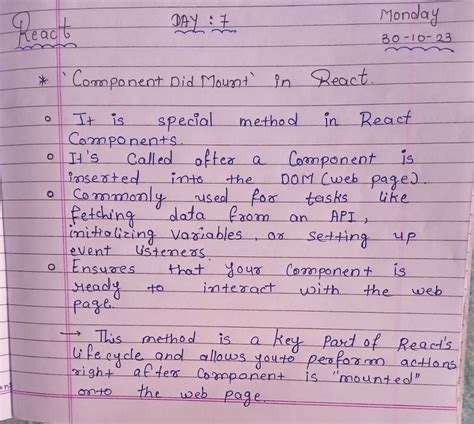 React
DAY : 7
Monday
30-10-23
* 'Component Did Mount' in React.
o It is special method in React
Components.
o It's Called after a Component is
inserted into the DOM (web page).
o Commonly used for tasks like
fetching data from an API,
initializing variables, or setting up
event listeners.
o Ensures that your Component is
ready to interact with the web
page.
→ This method is a key part of React's
life cycle and allows you to perform actions
right after component is "mounted"
onto the web page.